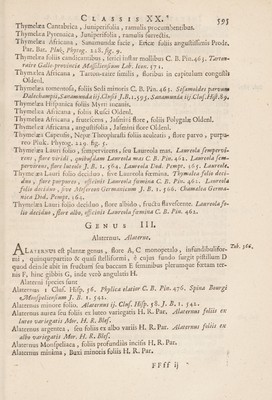 CLASSIS XX. 595
Thymelæa Cantabrica, Juniperifolia, ramulis procumbentibus.
Thymelæa Pyrenaica, Juniperifolia, ramulis surrectis.
Thymelæa Africana, Sanamundæ facie, Ericæ foliis angustissimis Prodr.
Par. Bat. Pluk. Phytog. 228. fig. 9.
Thymelæa foliis candicantibus, serici instar mollibus C. B. Pin. 463. Tarton-
raire Gallo-provinciæ Massiliensium Lob. Icon. 371.
Thymelæa Africana, Tarton-raire similis, floribus in capitulum congestis
Oldenl.
Thymelæa tomentosa, foliis Sedi minoris C. B. Pin. 463. Sesamoides parvum
Dalechampii, Sanamunda iij. Clusii J. B. 1. 595. Sanamunda iij. Clus. Hist. 89.
Thymelæa Hispanica foliis Myrti incanis.
Thymelæa Africana, foliis Rusci Oldenl.
Thymelæa Africana, frutescens, Jasmini flore, foliis Polygalæ Oldenl.
Thymelæa Africana, angustifolia, Jasmini flore Oldenl.
Thymelæa Capensis, foliis aculeatis, flore parvo, purpu-
reo Pluk. Phytog. 229. fig. 5.
Thymelæa Lauri folio, sempervirens, seu Laureola mas. Laureola sempervi-
rens, flore viridi, quibusdam Laureola mas C. B. Pin. 462. Laureola sem-
pervirens, flore luteolo J. B. 1. 564. Laureola Dod. Pempt. 365. Laureole.
Thymelæa Lauri folio deciduo, sive Laureola femina. Thymelæa folio deci-
duo, flore purpureo, officinis Laureola femina C. B. Pin. 462. Laureola
folio deciduo, sive Mezereon Germanicum J. B. 1. 566. Chamelæa Germa-
nica Dod. Pempt. 364.
Thymelæa Lauri folio deciduo, flore albido, fructu flavescente. Laureola fo-
lio deciduo, flore albo, officinis Laureola femina C. B. Pin. 462.
GENUS III.
Alaternus. Alaterne.
ALATERNUS est plantæ genus, flore A, C monopetalo, infundibulifor-
Tab. 366.
mi, quinquepartito & quasi stelliformi, è cujus fundo surgit pistillum D
quod deinde abit in fructum seu baccam E seminibus plerumque fœtam ter-
nis F, hinc gibbis G, inde verò angulatis H.
Alaterni species sunt
Alaternus 1 Clus. Hisp. 56. Phylica elatior C. B. Pin. 476. Spina Bourgi
Monspeliensium J. B. 1. 542.
Alaternus minore folio. Alaternus ij. Clus. Hisp. 58. J. B. 1. 542.
Alaternus aurea seu foliis ex luteo variegatis H. R. Par. Alaternus foliis ex
luteo variegatis Mor. H. R. Blef.
Alaternus argentea, seu foliis ex albo variis H. R. Par. Alaternus foliis ex
albo variegatis Mor. H. R. Blef.
Alaternus Monspeliaca, foliis profundiùs incisis H. R. Par.
Alaternus minima, Buxi minoris foliis H. R. Par.
FFff ij